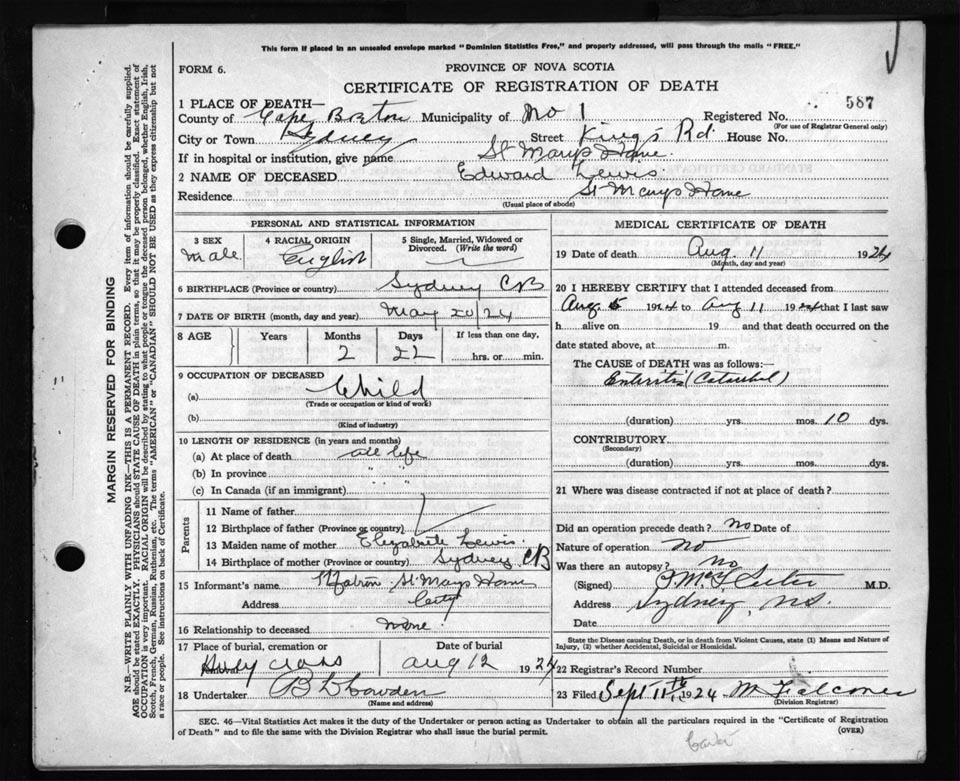 This form if placed in an unsealed envelope marked "Dominion Statistics Free," and properly addressed, will pass through the mails "FREE."
FORM 6.
PROVINCE OF NOVA SCOTIA
CERTIFICATE OF REGISTRATION OF DEATH
587
1 PLACE OF DEATH—
County of Cape Breton Municipality of No 1 Registered No.
(For use of Registrar General only)
City or Town Sydney Street Kings Rd. House No.
If in hospital or institution, give name St Marys Home.
2 NAME OF DECEASED Edward Lewis.
Residence St Marys Home
(Usual place of abode)
PERSONAL AND STATISTICAL INFORMATION
3 SEX
Male
4 RACIAL ORIGIN
English
5 Single, Married, Widowed or Divorced. (Write the word)
6 BIRTHPLACE (Province or country) Sydney CB
7 DATE OF BIRTH (month, day and year) May 20 24
8 AGE
Years Months Days If less than one day,
2 22 hrs. or min.
9 OCCUPATION OF DECEASED
(a) Child
(Trade or occupation or kind of work)
(b)
(Kind of industry)
10 LENGTH OF RESIDENCE (in years and months)
(a) At place of death all life
(b) In province " "
(c) In Canada (if an immigrant)
Parents
11 Name of father
12 Birthplace of father (Province or country)
13 Maiden name of mother Elizabeth Lewis.
14 Birthplace of mother (Province or country) Sydney CB
15 Informant's name Matron St Marys Home
Address City
16 Relationship to deceased none
17 Place of burial, cremation or Date of burial
Cross Aug 12 1924
18 Undertaker
(Name and address)
MEDICAL CERTIFICATE OF DEATH
19 Date of death Aug. 11 1924
(Month, day and year)
20 I HEREBY CERTIFY that I attended deceased from
Aug. 5 1924 to Aug 11 1924 that I last saw
h alive on 19 and that death occurred on
date stated above, at m.
The CAUSE OF DEATH was as follows:—
Enteritis (Catarrhal)
(duration) yrs. mos. 10 dys.
CONTRIBUTORY
(Secondary)
(duration) yrs. mos. dys.
21 Where was disease contracted if not at place of death?
Did an operation precede death? No Date of
Nature of operation No
Was there an autopsy? No
(Signed) M.D.
Address Sydney, N.S.
Date
State the Disease causing Death, or in death from Violent Causes, state (1) Means and Nature of
Injury, (2) whether Accidental, Suicidal or Homicidal.
22 Registrar's Record Number
23 Filed Sept 11th 1924 M Falconer
(Division Registrar)
SEC. 46—Vital Statistics Act makes it the duty of the Undertaker or person acting as Undertaker to obtain all the particulars required in the "Certificate of Registration
of Death" and to file the same with the Division Registrar who shall issue the burial permit.
(OVER)
MARGIN RESERVED FOR BINDING
N.B.—WRITE PLAINLY WITH UNFADING INK—THIS IS A PERMANENT RECORD. Every item of information should be carefully supplied.
AGE should be stated EXACTLY. PHYSICIANS should STATE CAUSE OF DEATH in plain terms, so that it may be properly classified. Exact statement of
OCCUPATION is very important. RACIAL ORIGIN will be described by stating to what people or tongue the deceased person belonged, whether English, Irish,
Scotch, French, German, Russian, Ruthenian, etc. The terms "AMERICAN" or "CANADIAN" SHOULD NOT BE USED as they express citizenship but not
a race or people. See instructions on back of Certificate.